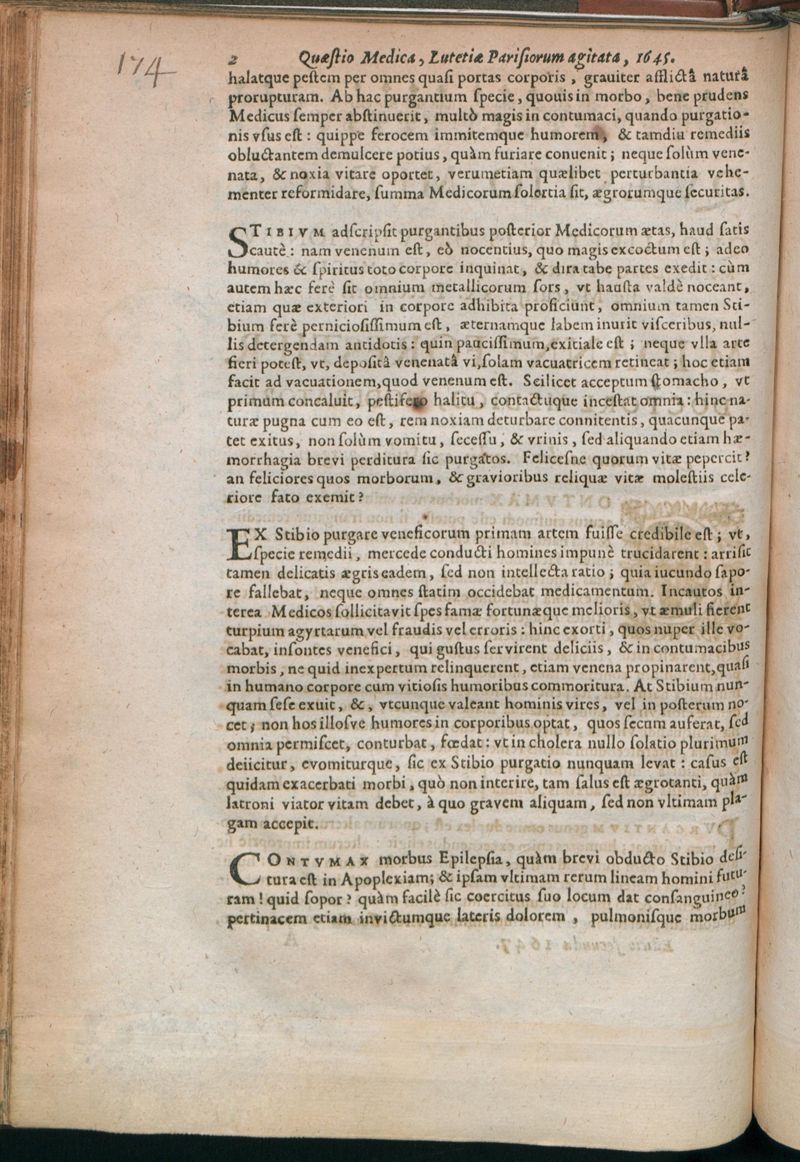 174
2 Quæſtio Medica, Lutetiæ Pariſiorum agitata, 1645.
halatque peſtem per omnes quaſi portas corporis, grauiter afflictâ naturâ
prorupturam. Ab hac purgantium ſpecie, quouis in morbo, bene prudens
Medicus ſemper abſtinuerit, multò magis in contumaci, quando purgatio-
nis vſus eſt : quippe ferocem immitemque humorem, & tamdiu remediis
obluctantem demulcere potius, quàm furiare conuenit ; neque ſolùm vene-
nata, & noxia vitare oportet, verumetiam quælibet perturbantia vehe-
menter reformidare, ſumma Medicorum ſolertia ſit, ægrorumque ſecuritas.
STIBIVM adſcripſit purgantibus poſterior Medicorum ætas, haud ſatis
cautè : nam venenum eſt, eò nocentius, quo magis excoctum eſt ; adeo
humores & ſpiritus toto corpore inquinat, & dira tabe partes exedit : cùm
autem hæc ferè ſit omnium metallicorum ſors, vt hauſta valdè noceant,
etiam quæ exteriori in corpore adhibita proficiunt, omnium tamen Sti-
bium ferè pernicioſiſſimum eſt, æternamque labem inurit viſceribus, nul-
lis detergendam antidotis : quin pauciſſimum, exitiale eſt ; neque vlla arte
fieri poteſt, vt, depoſitâ venenatâ vi, ſolam vacuatricem retineat ; hoc etiam
facit ad vacuationem, quod venenum eſt. Scilicet acceptum ſtomacho, vt
primum concaluit, peſtifero halitu, contactuque inceſtat omnia : hinc na-
turæ pugna cum eo eſt, rem noxiam deturbare connitentis, quacunque pa-
tet exitus, non ſolùm vomitu, ſeceſſu, & vrinis, ſed aliquando etiam hæ-
morrhagia brevi perditura ſic purgatos. Feliceſne quorum vitæ pepercit ?
an feliciores quos morborum, & gravioribus reliquæ vitæ moleſtiis cele-
riore fato exemit ?
EX Stibio purgare veneficorum primam artem fuiſſe credibile eſt ; vt,
ſpecie remedii, mercede conducti homines impunè trucidarent : arriſit
tamen delicatis ægris eadem, ſed non intellecta ratio ; quia iucundo ſapo-
re fallebat, neque omnes ſtatim occidebat medicamentum. Incautos in-
terea Medicos ſollicitavit ſpes famæ fortunæque melioris, vt æmuli fierent
turpium agyrtarum vel fraudis vel erroris : hinc exorti, quos nuper ille vo-
cabat, inſontes venefici, qui guſtus ſervirent deliciis, & in contumacibus
morbis, ne quid inexpertum relinquerent, etiam venena propinarent, quaſi
in humano corpore cum vitioſis humoribus commoritura. At Stibium nun-
quam ſeſe exuit, &, vtcunque valeant hominis vires, vel in poſterum no-
cet ; non hos illoſve humores in corporibus optat, quos ſecum auferat, ſed
omnia permiſcet, conturbat, fœdat : vt in cholera nullo ſolatio plurimum
deiicitur, evomiturque, ſic ex Stibio purgatio nunquam levat : caſus eſt
quidam exacerbati morbi, quò non interire, tam ſalus eſt ægrotanti, quàm
latroni viator vitam debet, à quo gravem aliquam, ſed non vltimam pla-
gam accepit.
CONTVMAX morbus Epilepſia, quàm brevi obducto Stibio deſi-
tura eſt in Apoplexiam ; & ipſam vltimam rerum lineam homini futu-
ram ! quid ſopor ? quàm facilè ſic coercitus ſuo locum dat conſanguineo ?
pertinacem etiam invictumque lateris dolorem, pulmoniſque morbum